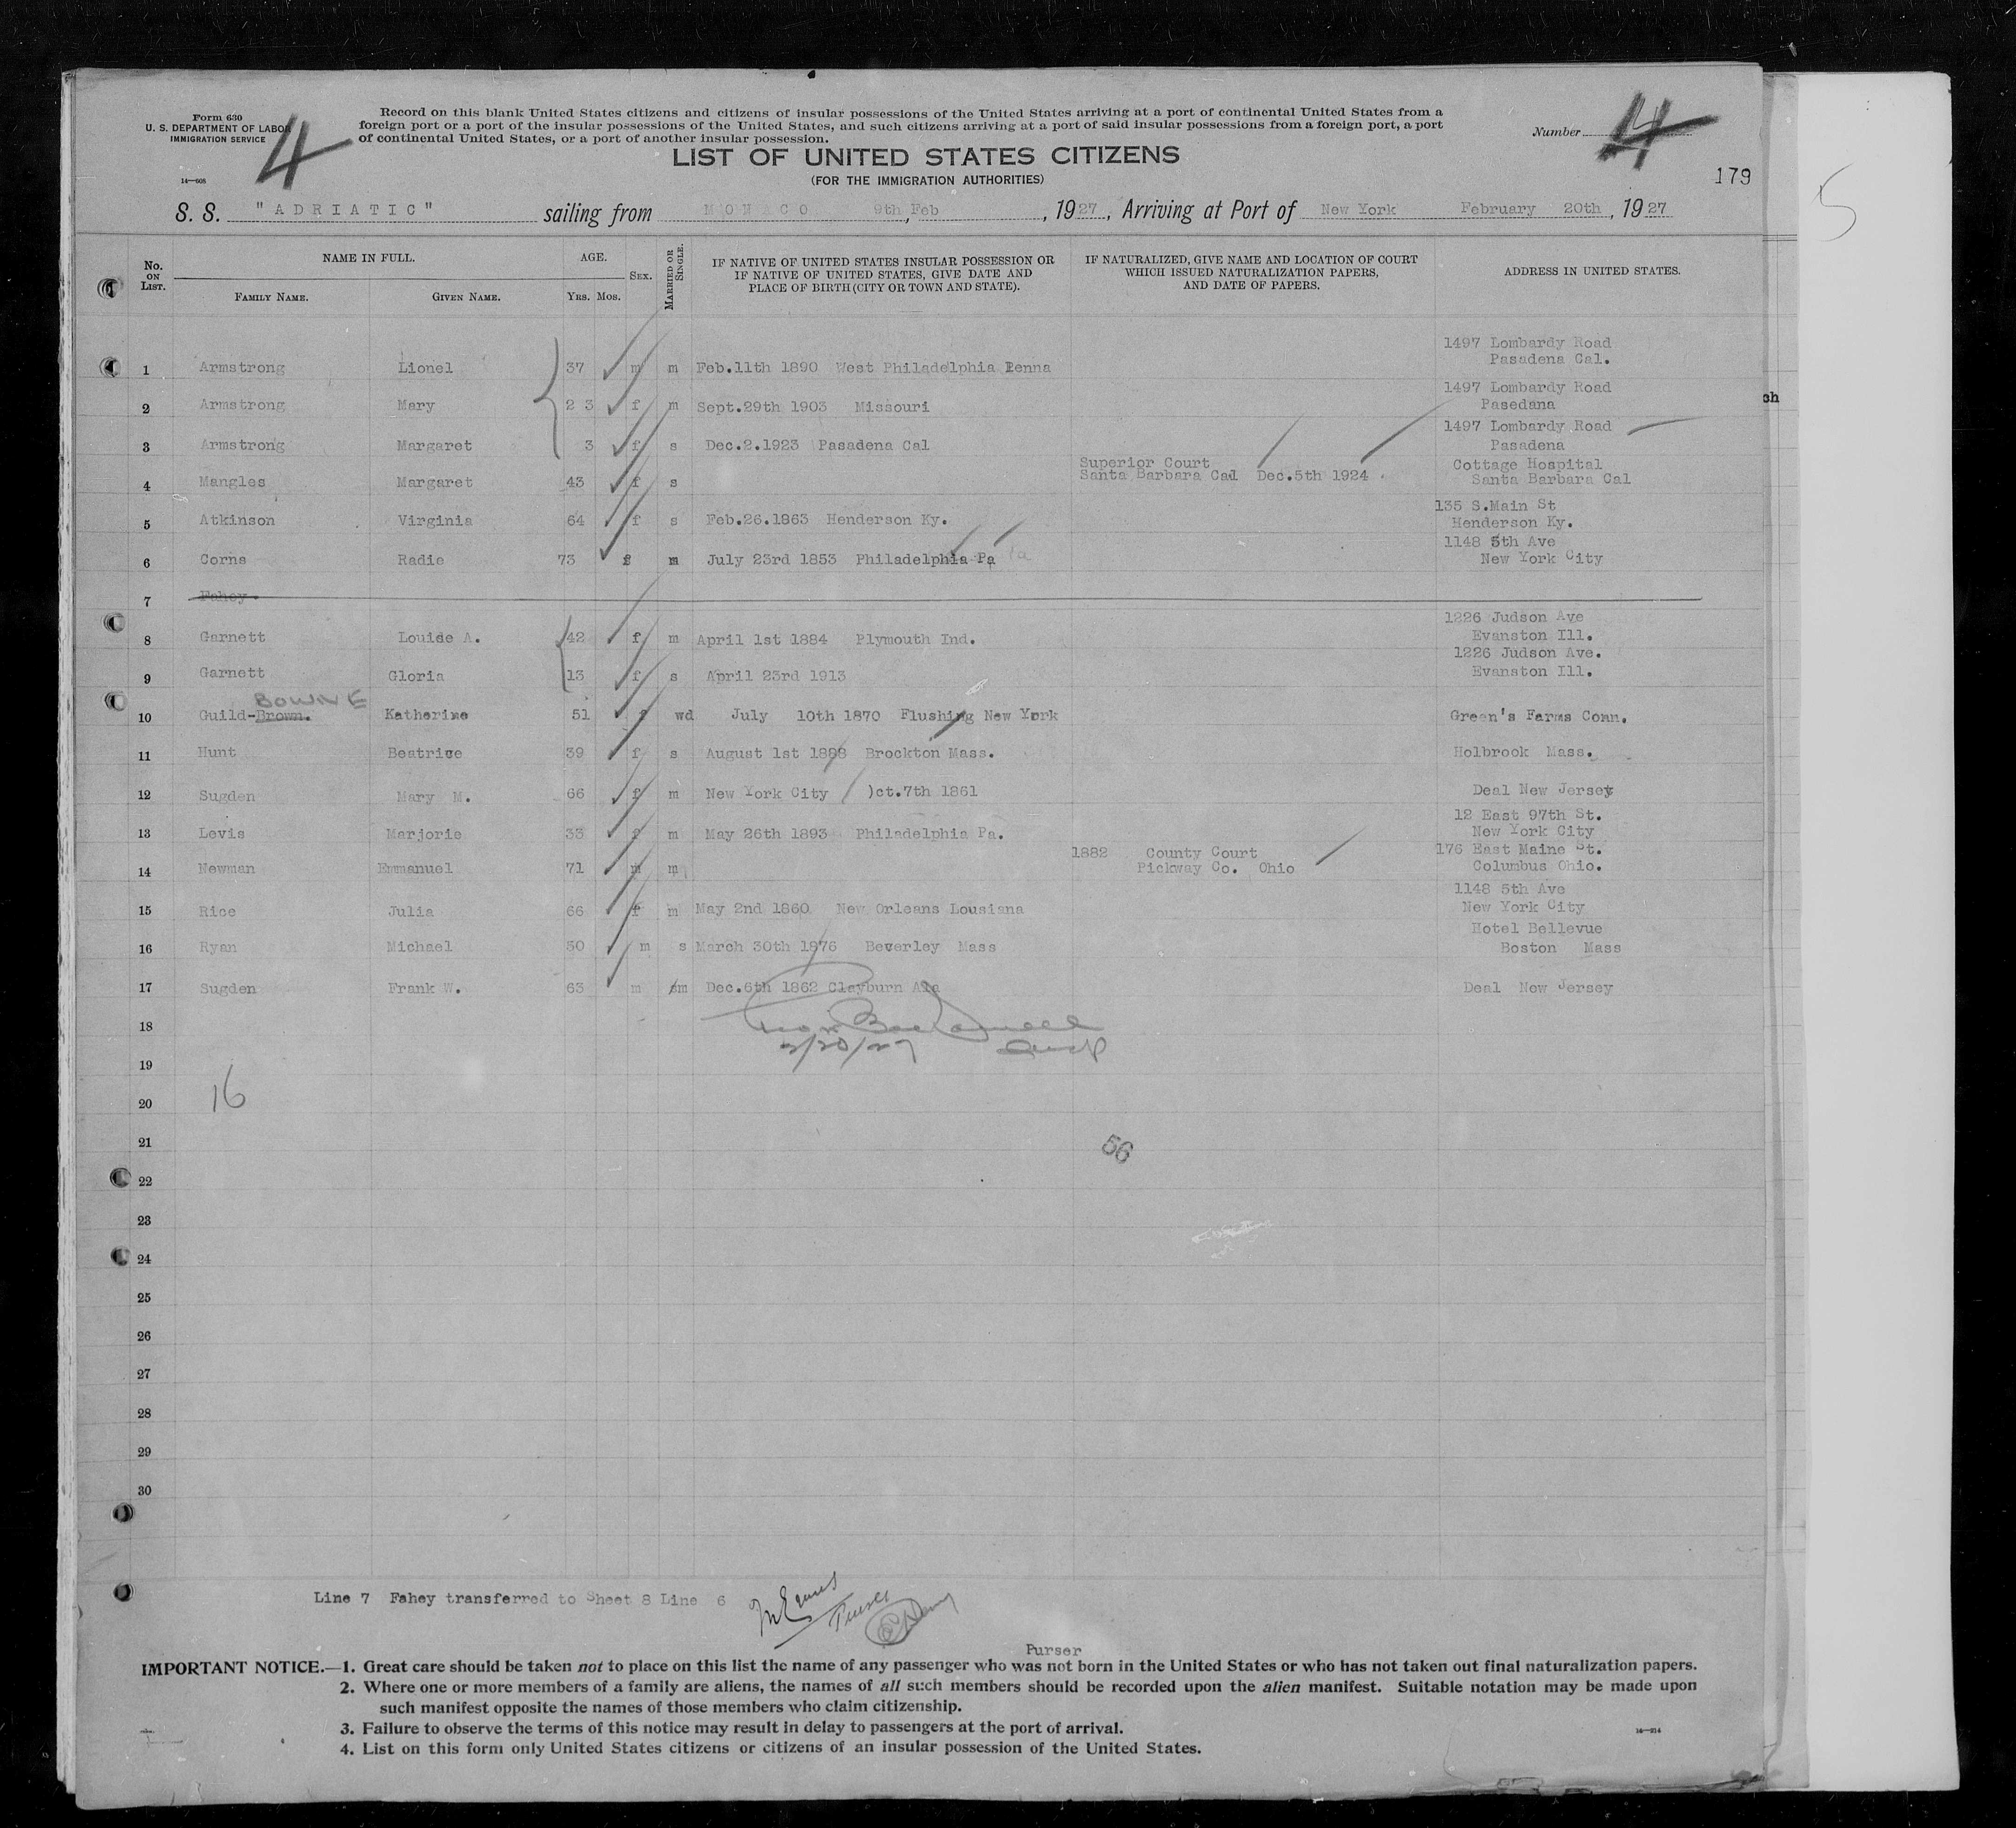 Form 630
U. S. DEPARTMENT OF LABOR
IMMIGRATION SERVICE
14—608
4
Record on this blank United States citizens and citizens of insular possessions of the United States arriving at a port of continental United States from a
foreign port or a port of the insular possessions of the United States, and such citizens arriving at a port of said insular possessions from a foreign port, a port
of continental United States, or a port of another insular possession.
Number 4
LIST OF UNITED STATES CITIZENS
(FOR THE IMMIGRATION AUTHORITIES)
179
5
S. S. "ADRIATIC" sailing from MONACO 9th, Feb , 1927, Arriving at Port of New York February 20th, 1927
No. ON LIST. NAME IN FULL. FAMILY NAME. GIVEN NAME. AGE. YRS. MOS. SEX. MARRIED OR SINGLE. IF NATIVE OF UNITED STATES INSULAR POSSESSION OR IF NATIVE OF UNITED STATES, GIVE DATE AND PLACE OF BIRTH (CITY OR TOWN AND STATE). IF NATURALIZED, GIVE NAME AND LOCATION OF COURT WHICH ISSUED NATURALIZATION PAPERS, AND DATE OF PAPERS. ADDRESS IN UNITED STATES.
1 Armstrong Lionel 37 m m Feb.11th 1890 West Philadelphia Penna 1497 Lombardy Road Pasadena Cal.
2 Armstrong Mary 2 3 f m Sept.29th 1903 Missouri 1497 Lombardy Road Pasedana
ch
3 Armstrong Margaret 3 f s Dec.2.1923 Pasadena Cal 1497 Lombardy Road Pasadena
4 Mangles Margaret 43 f s Superior Court Santa Barbara Cal Dec.5th 1924 Cottage Hospital Santa Barbara Cal
5 Atkinson Virginia 64 f s Feb.26.1863 Henderson Ky. 135 S.Main St Henderson Ky.
6 Corns Radie 73 f m July 23rd 1853 Philadelphia Pa 1148 5th Ave New York City
7 Fahey
8 Garnett Louise A. 42 f m April 1st 1884 Plymouth Ind. 1226 Judson Ave Evanston Ill.
9 Garnett Gloria 13 f s April 23rd 1913 1226 Judson Ave. Evanston Ill.
BOWNE
10 Guild-Brown. Katherine 51 f wd July 10th 1870 Flushing New York Green's Farms Conn.
11 Hunt Beatrice 39 f s August 1st 1888 Brockton Mass. Holbrook Mass.
12 Sugden Mary M. 66 f m New York City )ct.7th 1861 Deal New Jersey
13 Levis Marjorie 33 f m May 26th 1893 Philadelphia Pa. 12 East 97th St. New York City
14 Newman Emmanuel 71 m m 1882 County Court Pickway Co. Ohio 176 East Maine St. Columbus Ohio.
15 Rice Julia 66 f m May 2nd 1860 New Orleans Lousiana 1148 5th Ave New York City
16 Ryan Michael 50 m s March 30th 1876 Beverley Mass Hotel Bellevue Boston Mass
17 Sugden Frank W. 63 m sm Dec.6th 1862 Clayburn Ala Deal New Jersey
18
2/20/27
19
20 16
21
56
22
23
24
25
26
27
28
29
30
Line 7 Fahey transferred to Sheet 8 Line 6
Purser
Purser
IMPORTANT NOTICE.—1. Great care should be taken not to place on this list the name of any passenger who was not born in the United States or who has not taken out final naturalization papers.
2. Where one or more members of a family are aliens, the names of all such members should be recorded upon the alien manifest. Suitable notation may be made upon
such manifest opposite the names of those members who claim citizenship.
3. Failure to observe the terms of this notice may result in delay to passengers at the port of arrival.
14—214
4. List on this form only United States citizens or citizens of an insular possession of the United States.